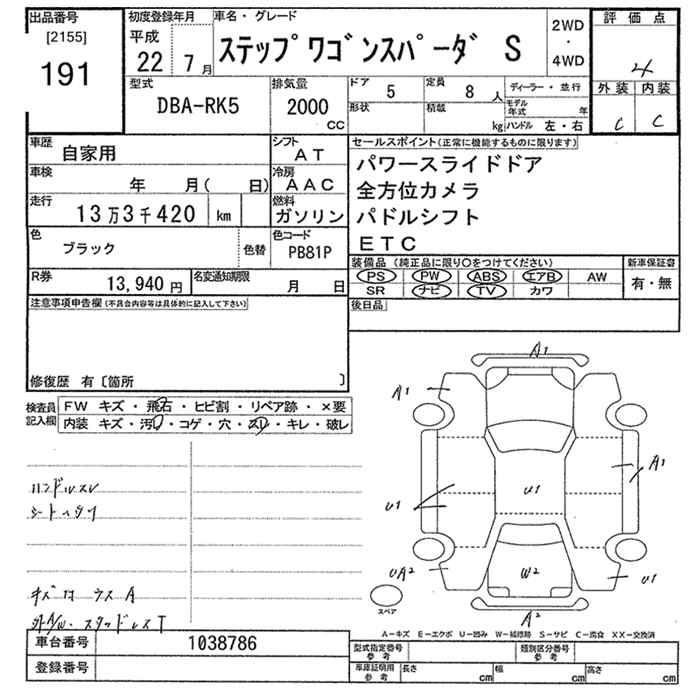 出品番号 初度登録年月 車名・グレード 評価点
[2155] 平成 ステップワゴンスパーダ S 2WD
191 22 7月 ・ 4
4WD
型式 排気量 ドア 5 定員 8 人 ディーラー・並行 外装 内装
DBA-RK5 2000 CC 形状 積載 kg モデル年式 年 C C
ハンドル 左・右
車歴 自家用 シフト AT セールスポイント(正常に機能するものに限ります)
車検 年 月( 日) 冷房 AAC パワースライドドア
全方位カメラ
走行 13万3千420 km 燃料 ガソリン パドルシフト
色 ブラック 色替 色コード PB81P ETC
装備品 (純正品に限り〇をつけてください) 新車保証書
R券 13,940円 名変通知期限 月 日 PS PW ABS エアB AW 有・無
SR ナビ TV カワ
注意事項申告欄(不具合内容等は具体的に記入して下さい) 後日品
修復歴 有〔箇所 〕
検査員記入欄 FW キズ・飛石・ヒビ割・リペア跡・×要
内装 キズ・汚れ・コゲ・穴・スレ・キレ・破レ
A1
A1
A1
U1
U1
UA2
W2
U1
A2
ハンドルスレ
シートヘタリ
キズ有 ウス A
外A/W・スタッドレスT
スペア
A-キズ E-エクボ U-凹み W-補修跡 S-サビ C-腐食 XX-交換済
車台番号 1038786 型式指定番号参考 類別区分番号参考
登録番号 車庫証明用参考 長さ cm 幅 cm 高さ cm